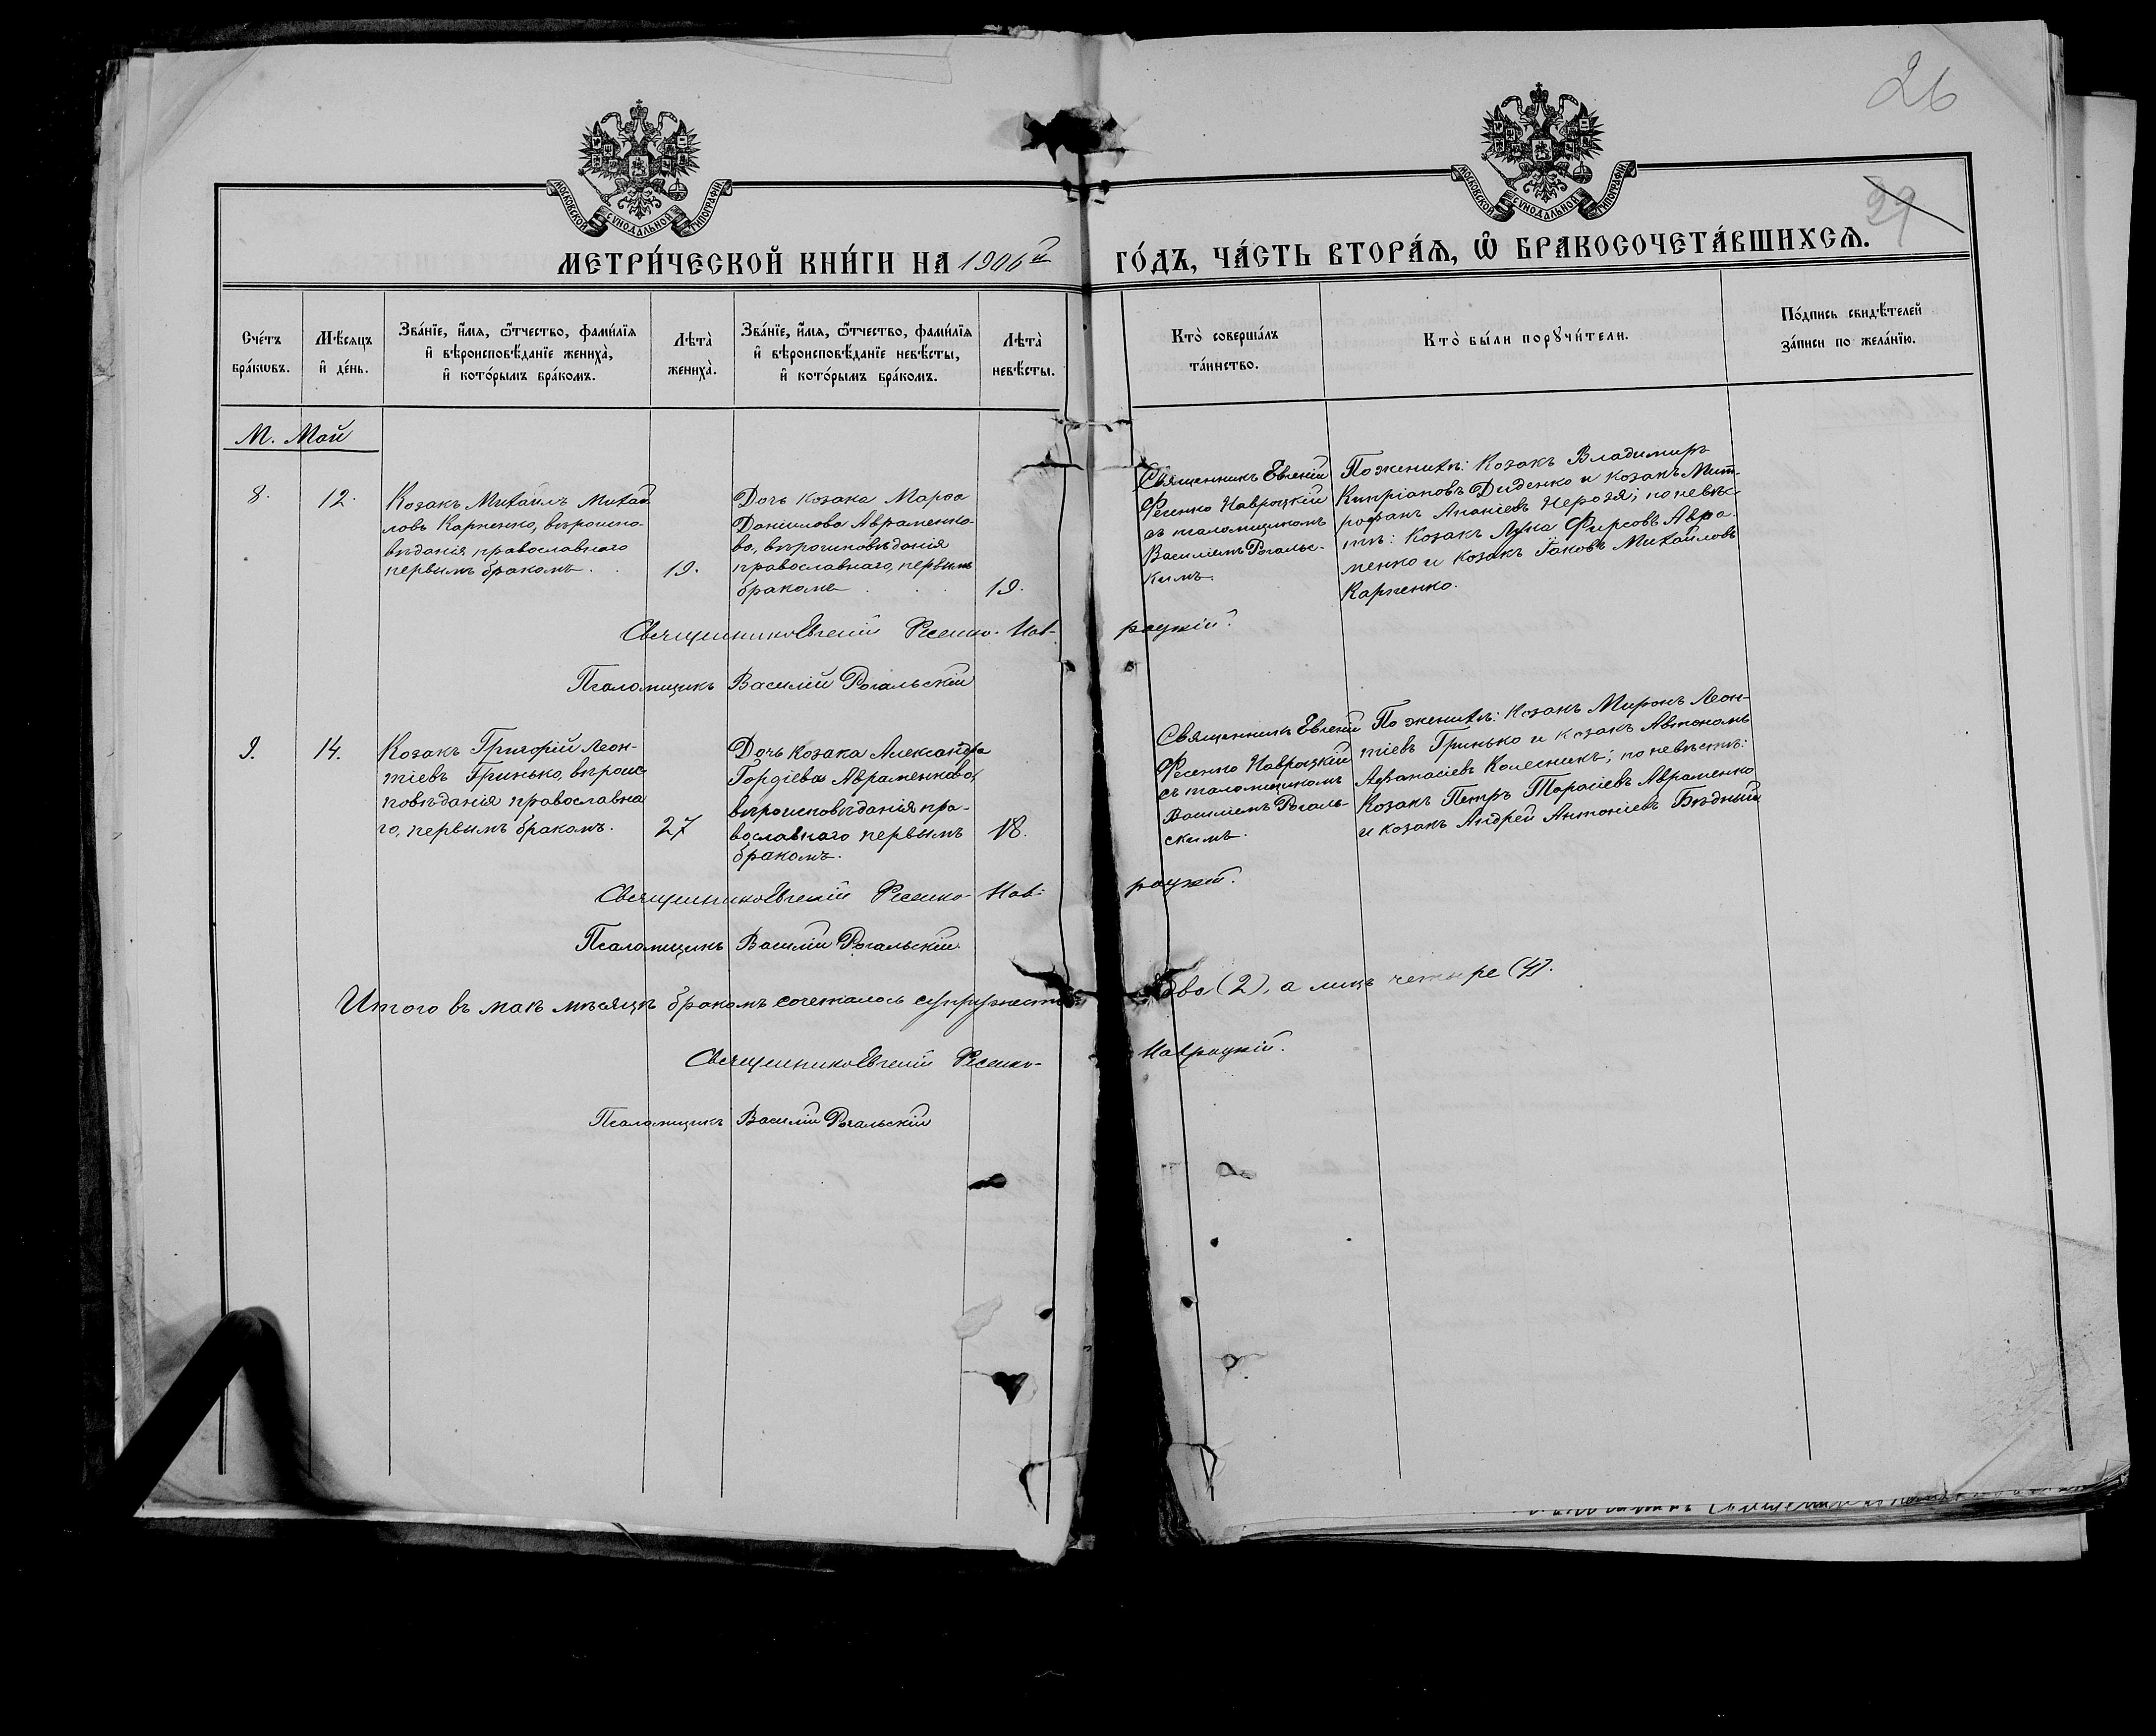 26
29
МОСКОВСКОЙ СѴНОДАЛЬНОЙ ТИПОГРАФІИ
МОСКОВСКОЙ СѴНОДАЛЬНОЙ ТИПОГРАФІИ
МЕТРИ́ЧЕСКОЙ КНИ́ГИ НА 1906й ГО́ДЪ, ЧА́СТЬ ВТОРА́Ѧ, Ѽ БРАКОСОЧЕТА́ВШИХСѦ.
Сче́тъ
бра́кѡвъ.
Мѣ́сяцъ
и҆ де́нь.
Зва́нїе, и҆́мя, ѻ҆́тчество, фами́лїя
и҆ вѣроисповѣ́данїе жениха̀,
и҆ кото́рымъ бра́комъ.
Лѣта̀
жениха̀.
Зва́нїе, и҆́мя, ѻ҆́тчество, фами́лїя
и҆ вѣроисповѣ́данїе невѣ́сты,
и҆ кото́рымъ бра́комъ.
Лѣта̀
невѣ́сты.
Кто̀ соверша́лъ
та́инство.
Кто̀ бы́ли порꙋчи́тели.
По́дпись свидѣ́телей
за́писи по жела́нїю.
М. Май
8.
12.
Козакъ Михаилъ Михай
ловъ Карпенко, вѣроиспо-
вѣданія православнаго
первымъ бракомъ.
19.
Дочь козака Марѳа
Даніилова Авраменко-
ва, вѣроисповѣданія
православнаго, первымъ
бракомъ
19.
Священникъ Евгеній
Фесенко Навроцкій
съ псаломщикомъ
Василіемъ Рогальс-
кимъ.
По женихѣ: Козакъ Владимиръ
Кипріановъ Диденко и козакъ Мит-
рофанъ Ананіевъ Нерозя; по невѣс-
тѣ: Козакъ Лука Фирсовъ Авра-
менко и козакъ Іаковъ Михайловъ
Карпенко.
Священникъ Евгеній Фесенко-Нав-роцкій.
Псаломщикъ Василій Рогальскій
9.
14.
Козакъ Григорій Леон-
тіевъ Гринько, вѣроис
повѣданія православна
го, первымъ бракомъ.
27
Дочь козака Александра
Гордіева Авраменкова,
вѣроисповѣданія пра-
вославнаго первымъ
бракомъ.
18.
Священникъ Евгеній
Фесенко Навроцкій
съ псаломщикомъ
Василіемъ Рогаль-
скимъ.
По женихѣ: Козакъ Миронъ Леон-
тіевъ Гринько и козакъ Автономъ
Аѳанасіевъ Колесникъ; по невѣстѣ:
Козакъ Петръ Тарасіевъ Авраменко
и козакъ Андрей Антоніевъ Бѣдный
Священникъ Евгеній Фесенко-Нав-роцкій.
Псаломщикъ Василій Рогальскій.
Итого въ маѣ мѣсяцѣ бракомъ сочеталось супружествъ два (2), а лицъ четыре (4).
Священникъ Евгеній Фесенко-Навроцкій.
Псаломщикъ Василій Рогальскій